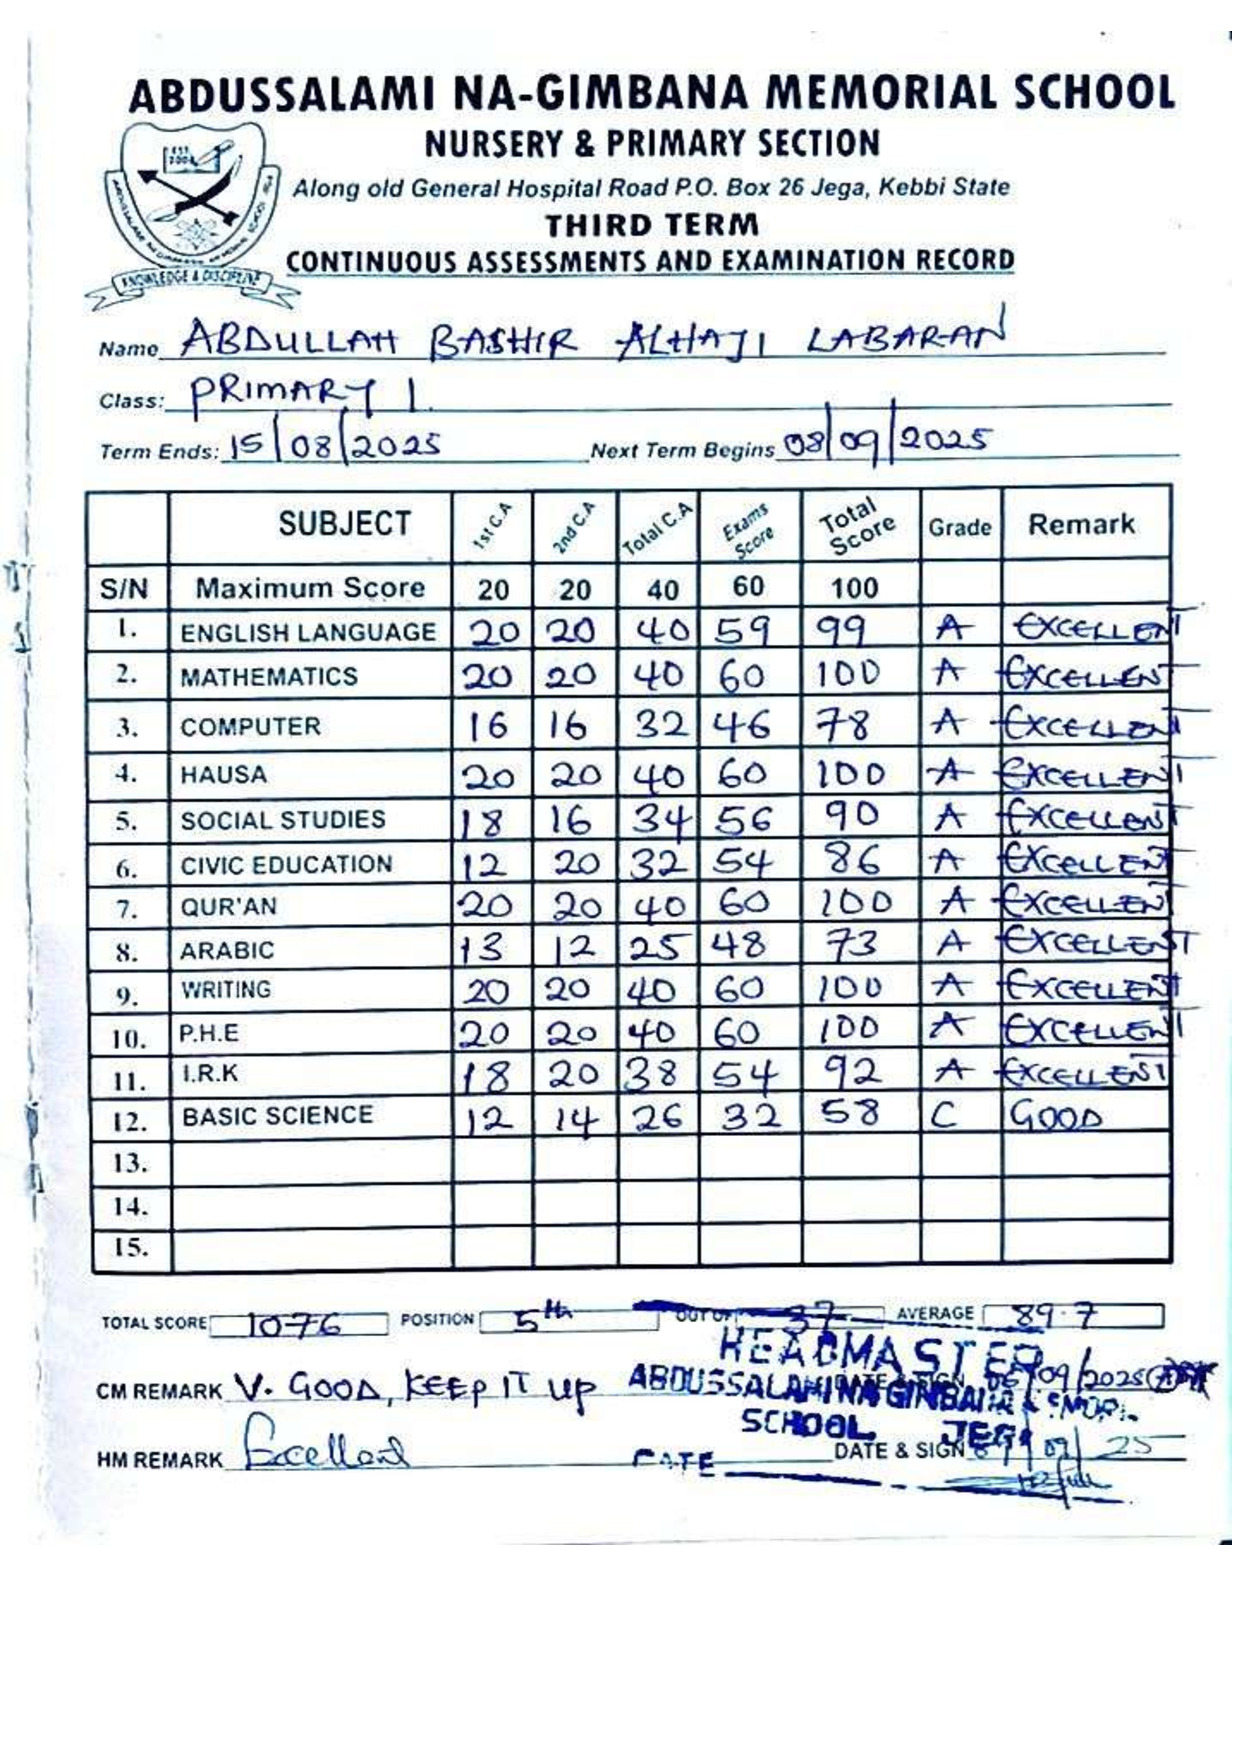 ABDUSSALAMI NA-GIMBANA MEMORIAL SCHOOL
NURSERY & PRIMARY SECTION
Along old General Hospital Road P.O. Box 26 Jega, Kebbi State
THIRD TERM
CONTINUOUS ASSESSMENTS AND EXAMINATION RECORD
KNOWLEDGE & DISCIPLINE
Name ABDULLAH BASHIR ALHAJI LABARAN
Class: PRIMARY 1.
Term Ends: 15/08/2025 Next Term Begins 08/09/2025
SUBJECT 1st C.A 2nd C.A Total C.A Exams Score Total Score Grade Remark
S/N Maximum Score 20 20 40 60 100
1. ENGLISH LANGUAGE 20 20 40 59 99 A EXCELLENT
2. MATHEMATICS 20 20 40 60 100 A EXCELLENT
3. COMPUTER 16 16 32 46 78 A EXCELLENT
4. HAUSA 20 20 40 60 100 A EXCELLENT
5. SOCIAL STUDIES 18 16 34 56 90 A EXCELLENT
6. CIVIC EDUCATION 12 20 32 54 86 A EXCELLENT
7. QUR'AN 20 20 40 60 100 A EXCELLENT
8. ARABIC 13 12 25 48 73 A EXCELLENT
9. WRITING 20 20 40 60 100 A EXCELLENT
10. P.H.E 20 20 40 60 100 A EXCELLENT
11. I.R.K 18 20 38 54 92 A EXCELLENT
12. BASIC SCIENCE 12 14 26 32 58 C GOOD
13.
14.
15.
TOTAL SCORE 1076 POSITION 5th OUT OF 37 AVERAGE 89.7
HEADMASTER
CM REMARK V. GOOD, KEEP IT UP DATE & SIGN 06/09/2025
ABDUSSALAMI NA GINBANA
SCHOOL JEGA
HM REMARK Excellent DATE & SIGN
DATE